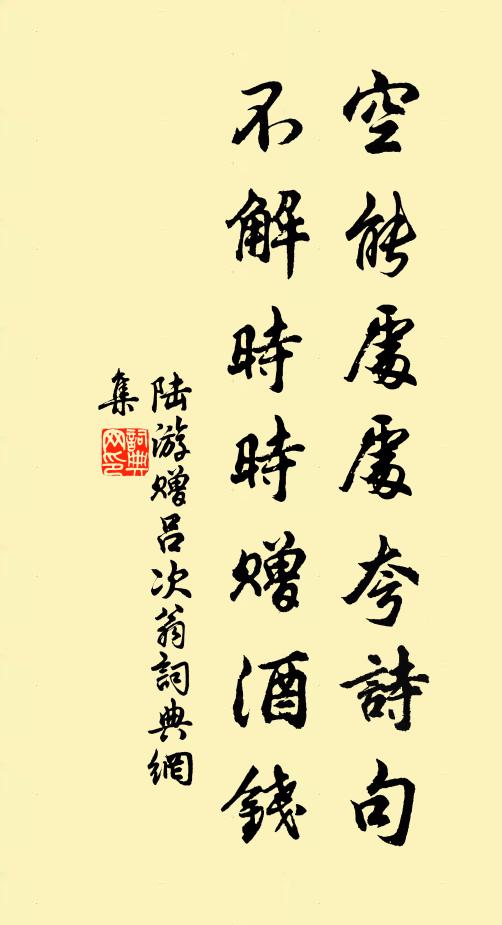 空能處處夸詩句
不解時時贈酒錢
陆游赠吕次翁詞典網
集
詞典
网印